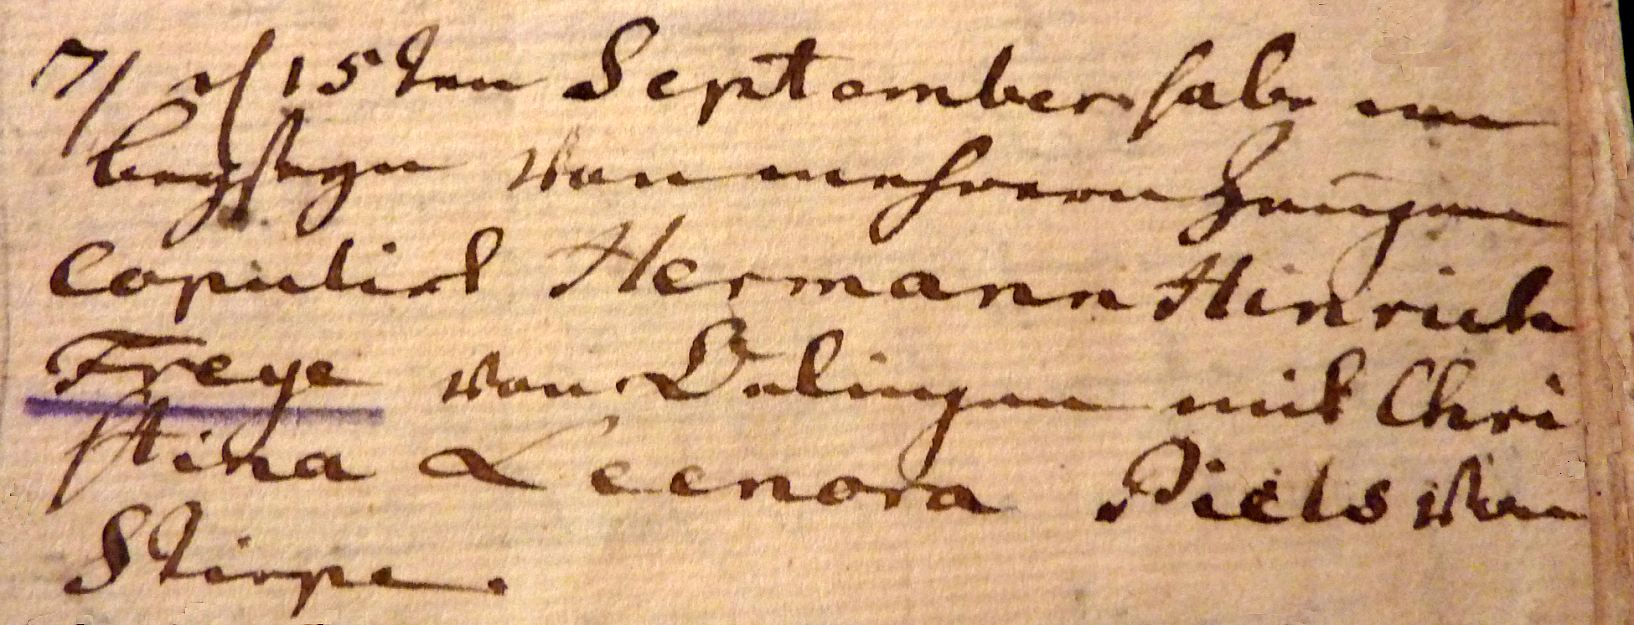 7/ d 15ten September habe im
beyseyn von mehrern Zeugen
Copulirt Hermann Hinrich
Freye von Delingen mit Chri
stina Leenora Piels von
Stirpe.